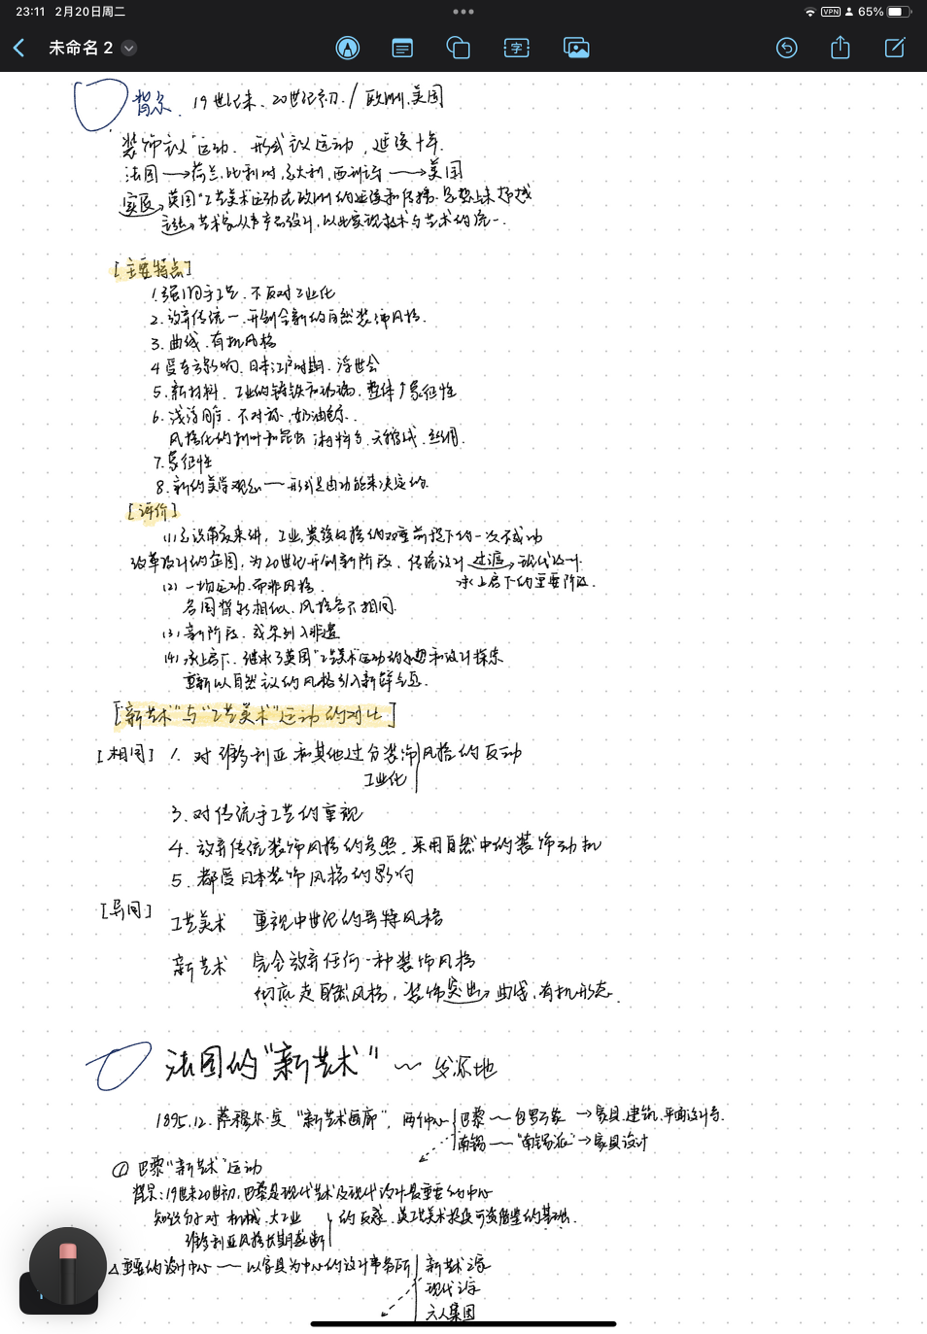 23:11 2月20日周二
VPN 65%
未命名 2
字
背景 19世纪末、20世纪初 / 欧洲、美国
装饰议"运动、形式议运动，延续十年.
法国 → 荷兰、比利时、意大利、西班牙 → 美国
实质 英国"工艺美术运动在欧洲的延续和传播、思想上未超越
主张 艺术家从事产品设计，以此实现技术与艺术的统一.
[主要特点]
1.强调手工艺、不反对工业化
2.放弃传统一、开创全新的自然装饰风格.
3.曲线、有机风格
4受东方影响、日本江户时期、浮世会
5.新材料、工业的铸铁和玻璃、整体↑象征性
6.浅浮雕、不对称、奶油色
风格化的树叶和昆虫
7.象征性
8.新的美学观念——形式是由功能来决定的.
[评价]
(1)
改革设计的企图，为20世纪开创新阶段、传统设计 过渡→现代设计.
承上启下的重要阶段.
(2) 一场运动、而非风格.
各国背景相似、风格各不相同.
(3) 新阶段、
(4)承上启下、继承了英国"工艺美术运动的思想和设计探索
重新以自然议的风格引入新鲜气息.
[新艺术"与"工艺美术"运动的对比]
[相同] 1. 对维多利亚和其他过分装饰风格的反动
工业化
3.对传统手工艺的重视
4.放弃传统装饰风格的参照、采用自然中的装饰动机
5.都受日本装饰风格的影响
[异同]
工艺美术 重视中世纪的哥特风格
新艺术 完全放弃任何一种装饰风格
彻底走自然风格，装饰突出→曲线、有机形态.
法国的"新艺术" ~ 发源地
1895.12.萨穆尔·宾 "新艺术画廊"，两中心 巴黎 — 包罗万象 → 家具、建筑、平面设计等.
南锡 — "南锡派" → 家具设计
① 巴黎"新艺术"运动
背景:19世末20世初，巴黎是现代艺术及现代设计最重要的中心
知识分子对 机械、大工业 的反感，英工艺美术提供可资借鉴的基础.
维多利亚风格长期垄断
△重要的设计中心 — 以家具为中心的设计事务所 新艺术之家
现代之家
六人集团